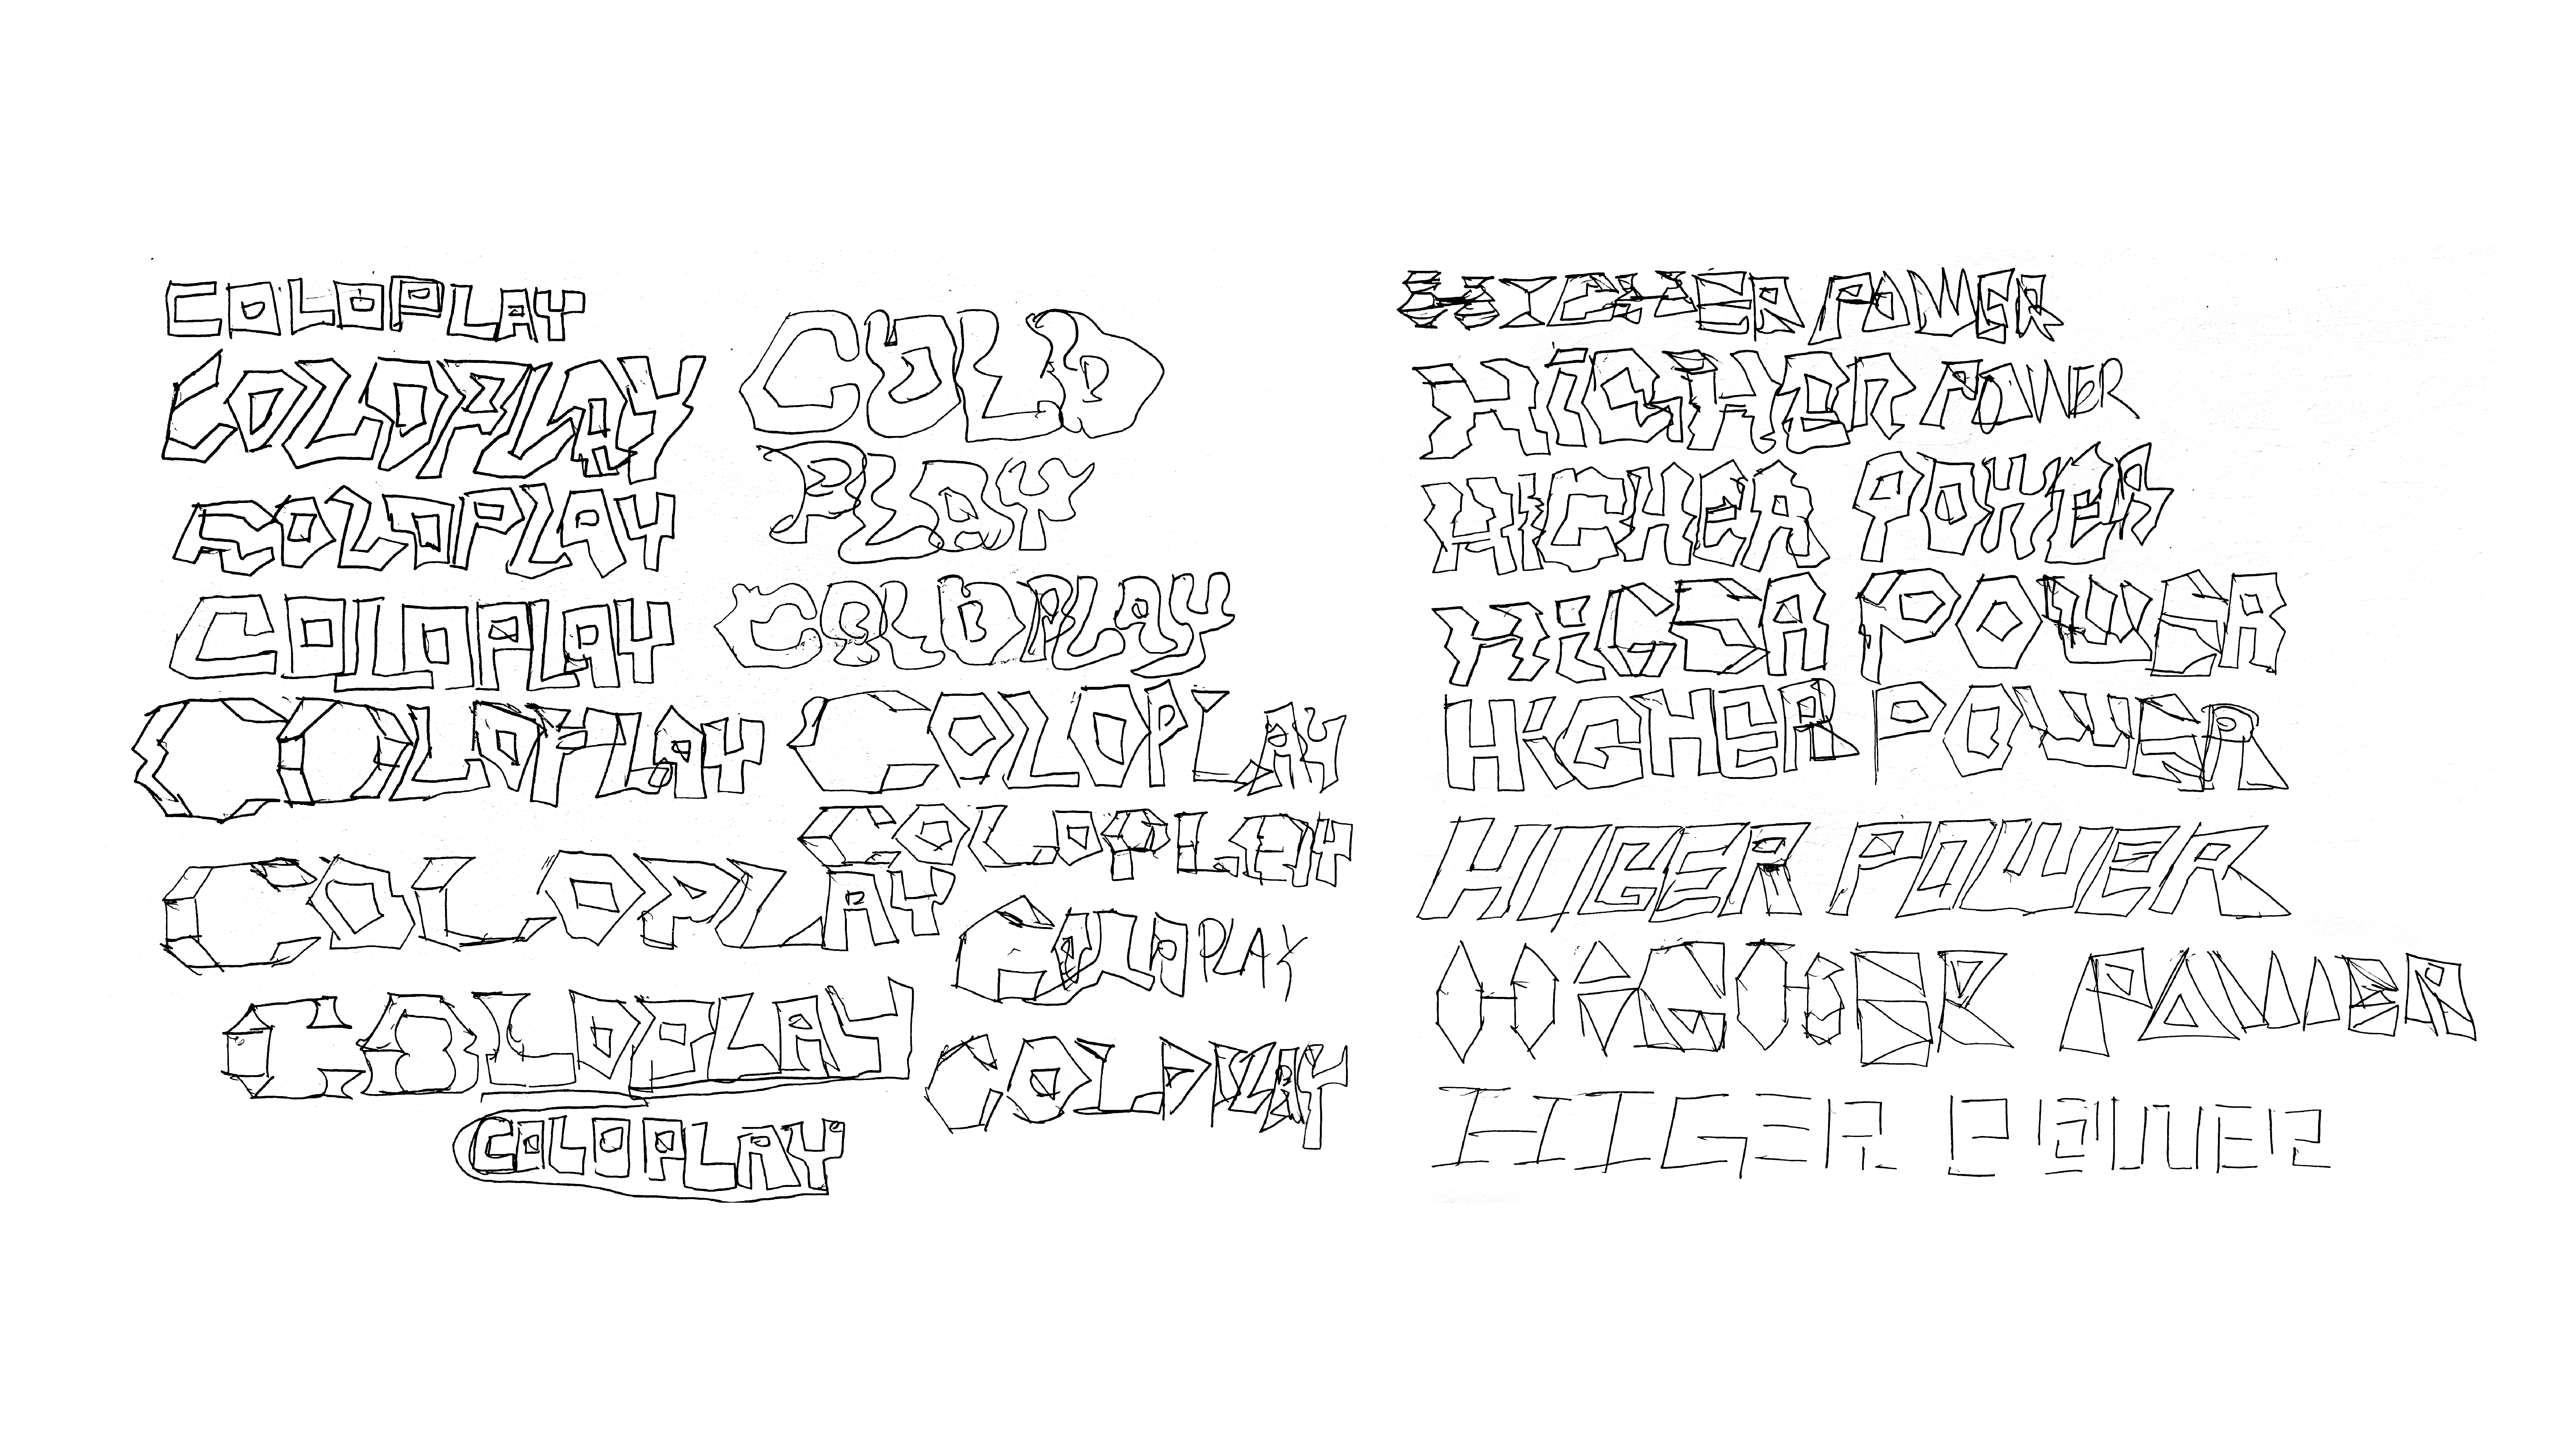 COLDPLAY
COLDPLAY
COLDPLAY
COLDPLAY
COLDPLAY
COLDPLAY
COLDPLAY
COLDPLAY
COLD
PLAY
COLDPLAY
COLDPLAY
COLDPLAY
COLDPLAY
COLDPLAY
HIGHER POWER
HiGHER POWER
HIGHER POWER
HiGER POWER
HiGHER POWER
HIGER POWER
HIGHER POWER
HIGER POWER